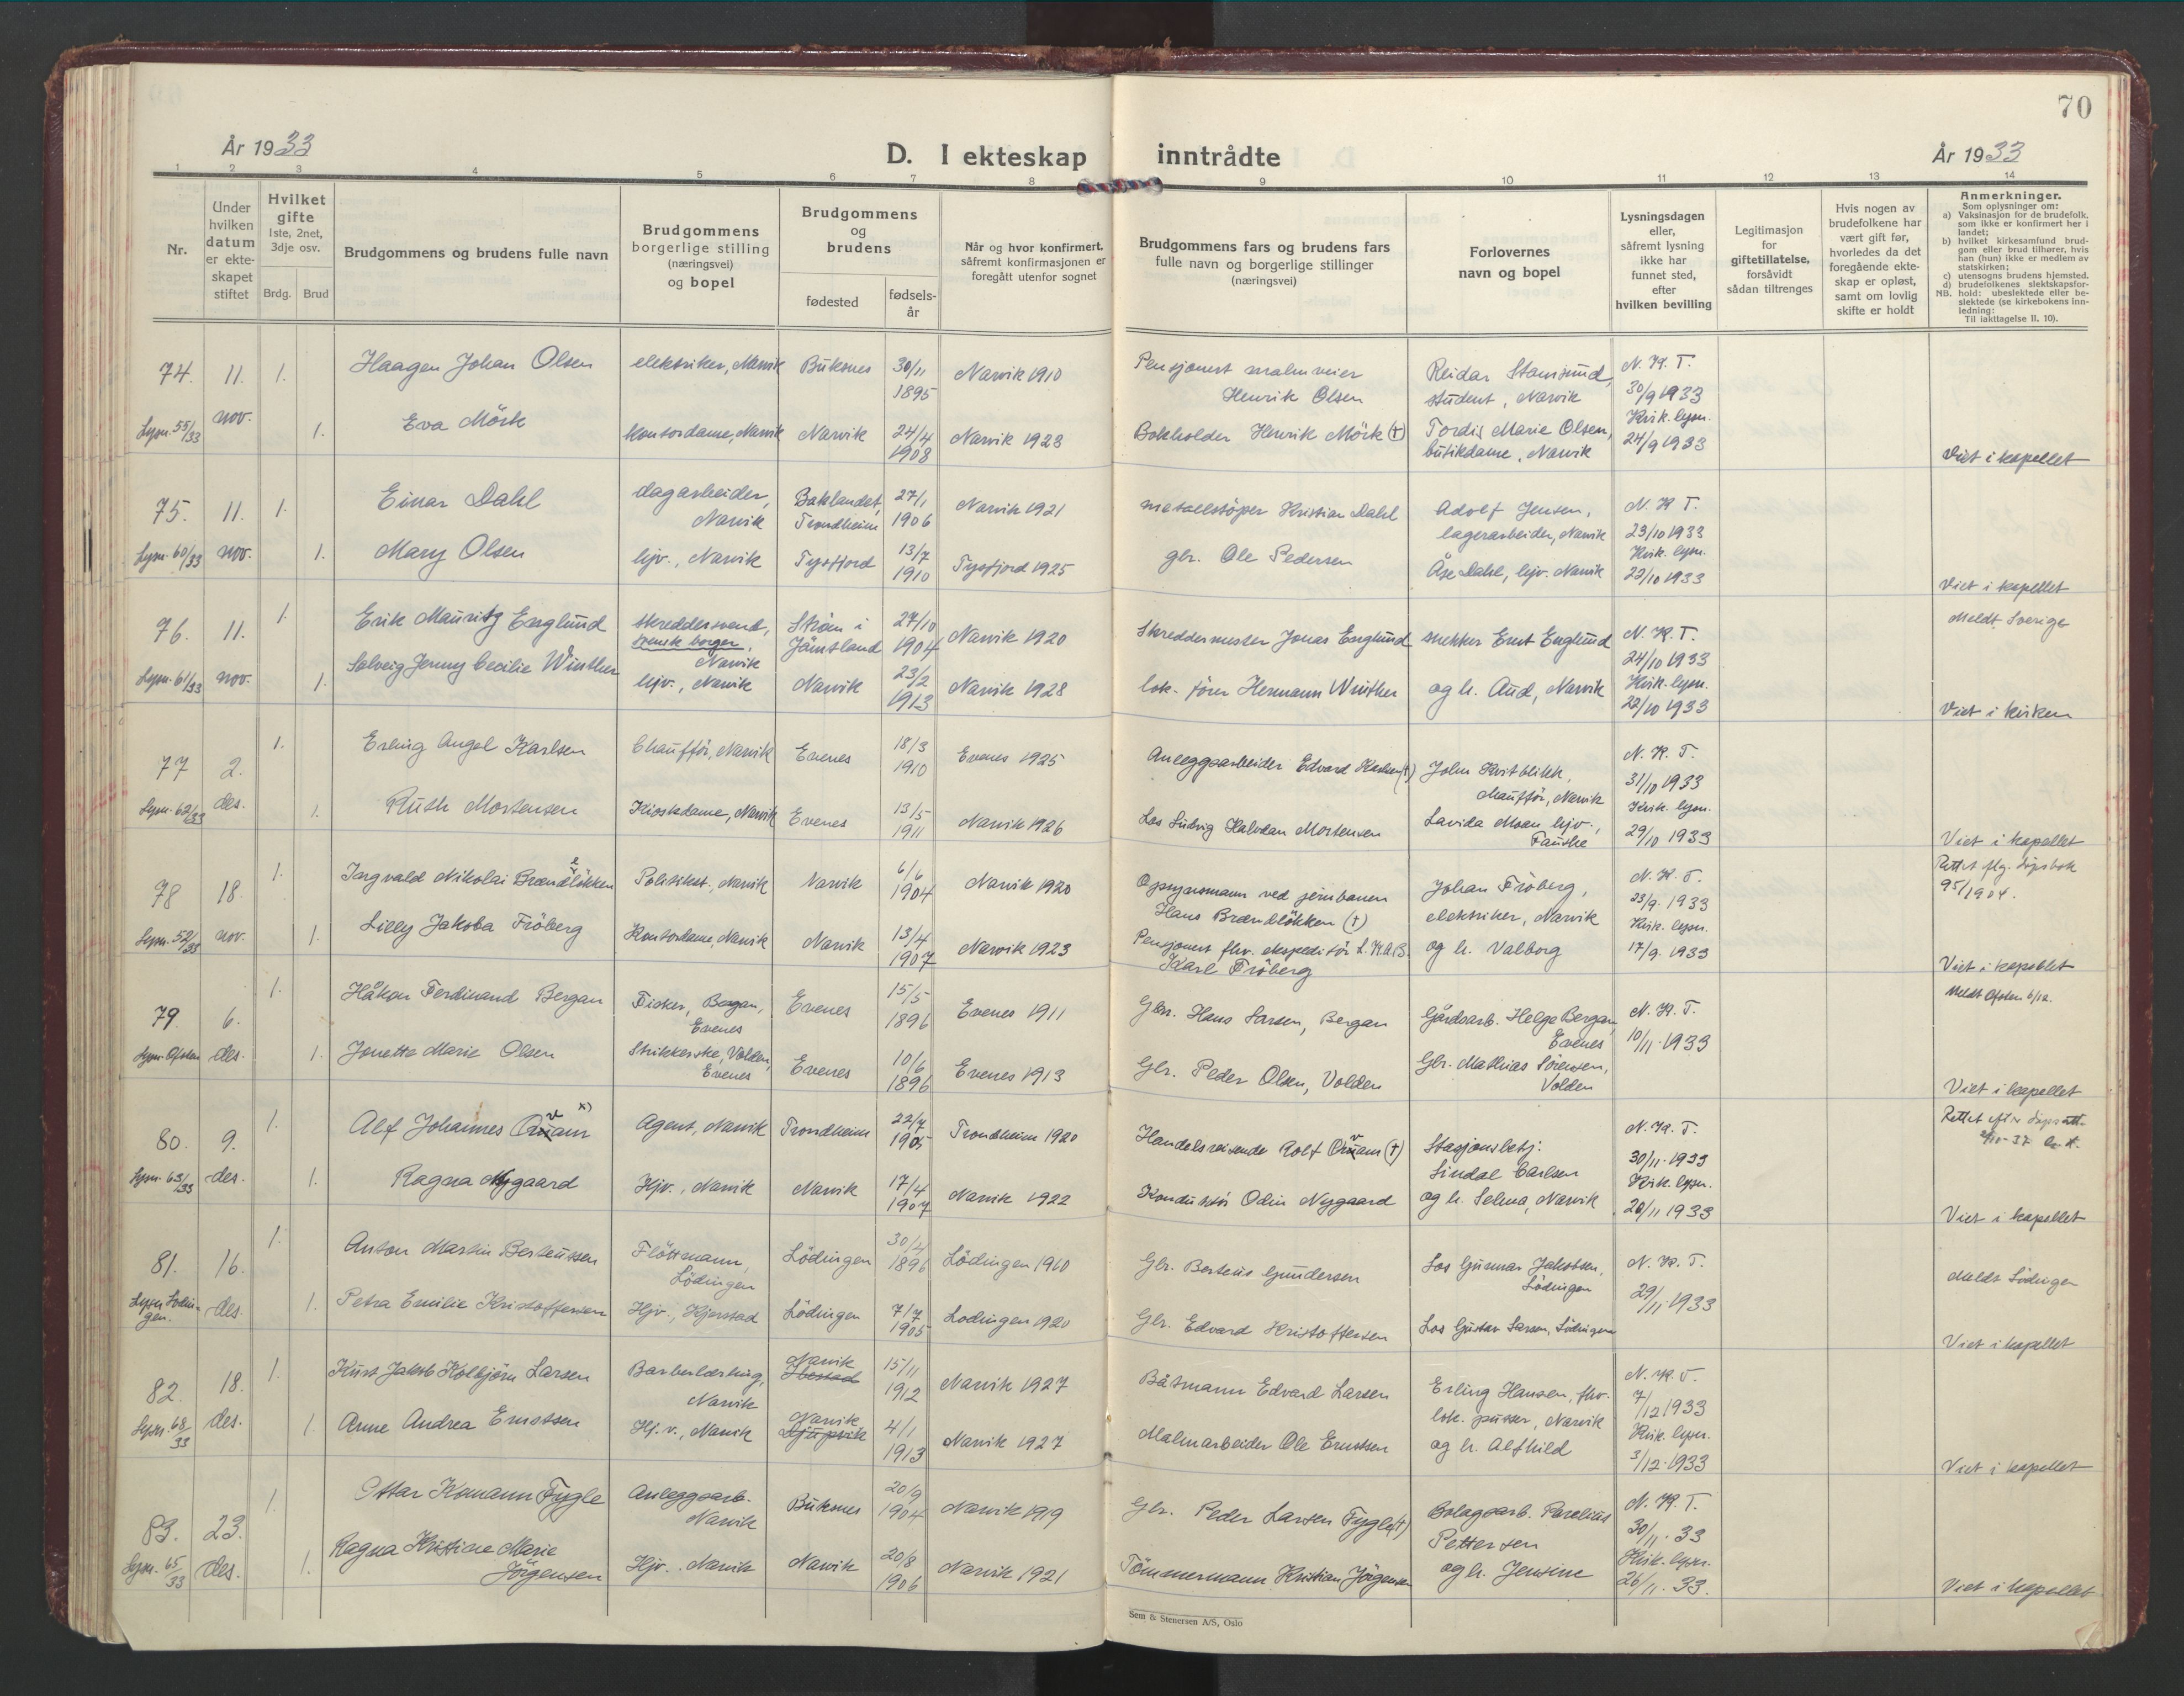 70
År 1933
D. I ekteskap inntrådte
År 1933
1 2 3 4 5 6 7 8 9 10 11 12 13 14
Nr.
Under hvilken datum er ekteskapet stiftet
Hvilket gifte
1ste, 2net, 3dje osv.
Brdg. Brud
Brudgommens og brudens fulle navn
Brudgommens borgerlige stilling (næringsvei) og bopel
Brudgommens og brudens
fødested
fødselsår
Når og hvor konfirmert, såfremt konfirmasjonen er foregått utenfor sognet
Brudgommens fars og brudens fars fulle navn og borgerlige stillinger (næringsvei)
Forlovernes navn og bopel
Lysningsdagen eller, såfremt lysning ikke har funnet sted, efter hvilken bevilling
Legitimasjon for giftetillatelse, forsåvidt sådan tiltrenges
Hvis nogen av brudefolkene har vært gift før, hvorledes da det foregående ekteskap er opløst, samt om lovlig skifte er holdt
Anmerkninger.
Som oplysninger om:
a) Vaksinasjon for de brudefolk, som ikke er konfirmert her i landet;
b) hvilket kirkesamfund brudgom eller brud tilhører, hvis han (hun) ikke er medlem av statskirken;
c) utensogns brudens hjemsted.
d) brudefolkenes slektskapsforhold: ubeslektede eller beslektede (se kirkebokens innledning:
NB.
Til iakttagelse II. 10).
74. 11. nov. 1. Haagen Johan Olsen elektriker, Narvik Buksnes 30/11 1895 Narvik 1910 Pensjonert malmveier Henrik Olsen Reidar Stamsund, student, Narvik N. K. T. 30/9 1933
Lysn. 55/33 1. Eva Mörk kontordame, Narvik Narvik 24/4 1908 Narvik 1923 Bokholder Henrik Mörk (†) Tordis Marie Olsen, butikdame, Narvik Kirk. lysn. 24/9 1933 Viet i kapellet
75. 11. nov. 1. Einar Dahl dagarbeider, Narvik Baklandet, Trondheim 27/1 1906 Narvik 1921 metallstöper Kristian Dahl Adolf Jensen, lagerarbeider, Narvik N. K. T. 23/10 1933
Lysn. 60/33 1. Mary Olsen hjv., Narvik Tysfjord 13/7 1910 Tysfjord 1925 gbr. Ole Pedersen Åse Dahl, hjv. Narvik Kirk. lysn. 22/10 1933 Viet i kapellet
76. 11. nov. 1. Erik Mauritz Englund skreddersvend, svensk borger, Narvik Ström i Jämtland 27/10 1904 Narvik 1920 Skreddermester Jonas Englund snekker Ernt Englund N. K. T. 24/10 1933 Meldt Sverige
Lysn. 61/33 1. Solveig Jenny Cecilie Winther hjv., Narvik Narvik 23/2 1913 Narvik 1928 lok. förer Hermann Winther og h. Aud, Narvik Kirk. lysn. 22/10 1933 Viet i kirken
77 2. des. 1. Erling Angel Karlsen Chaufför, Narvik Evenes 18/3 1910 Evenes 1925 Anleggsarbeider Edvard Karlsen (†) John Kvitblikk, chaufför, Narvik N. K. T. 31/10 1933
Lysn. 62/33 1. Ruth Mortensen Kioskdame, Narvik Evenes 13/5 1911 Narvik 1926 Los Ludvig Halvdan Mortensen Lavida Moan hjv., Fauske Kirk. lysn. 29/10 1933 Viet i kapellet
78 18. nov. 1. Ingvald Nikolai Brændlökken Politikst., Narvik Narvik 6/6 1904 Narvik 1920 Opsynsmann ved jernbanen Hans Brænlökken (†) Johan Fröberg, elektriker, Narvik N. K. T. 23/9. 1933 Rettet flg. dåpsbok 95/1904.
Lysn. 52/33 1. Lilly Jakoba Fröberg Kontordame, Narvik Narvik 13/4 1907 Narvik 1923 Pensjonert fhv. ekspeditör L.K.A.B. Karl Fröberg og h. Valborg Kirk. lysn. 17/9. 1933 Viet i kapellet
79. 6. des. 1. Håkon Ferdinand Bergan Fisker, Bergan, Evenes Evenes 15/5 1896 Evenes 1911 Gbr. Hans Larsen, Bergan Gårdsarb. Helge Bergan Evenes N. K. T. 10/11. 1933 Meldt Ofoten 6/12.
Lysn. Ofoten 1. Jonette Marie Olsen Strikkerske, Volden, Evenes Evenes 10/6 1896 Evenes 1913 Gbr. Peder Olsen, Volden Gbr. Mathias Sörensen, Volden Viet i kapellet
80. 9. des. 1. Alf Johannes Qvam x) Agent, Narvik Trondheim 22/7 1905 Trondheim 1920 Handelsreisende Rolf Qvam (†) Stasjonsbetj. Lindal Carlsen N. K. T. 30/11. 1933 Rettet efter dåpsatt.
Lysn. 63/33 1. Ragna Nygaard Hjv., Narvik Narvik 17/4 1907 Narvik 1922 Konduktör Odin Nygaard og h. Selma, Narvik Kirk. lysn. 20/11 1933 Viet i kapellet
81. 16. des. 1. Anton Martin Berteussen Flöttmann, Lödingen Lödingen 30/4 1896 Lödingen 1910 Gbr. Berteus Gundersen Los Gunnar Jakobsen, Lödingen N. K. T. 29/11 1933 Meldt Lödingen
Lysn. Lödingen. 1. Petra Emilie Kristoffersen Hjv., Kjerstad Lödingen 7/7 1905 Lödingen 1920 Gbr. Edvard Kristoffersen Los Gustav Larsen, Lödingen Viet i kapellet
82. 18. des. 1. Kurt Jakob Kolbjörn Larsen Barberlærling, Narvik Narvik Ibestad 15/11 1912 Narvik 1927 Båtmann Edvard Larsen Erling Hansen, fhv. lok. pusser, Narvik N. K. T. 7/12 1933
Lysn. 68/33 1. Anne Andrea Ernstsen Hj.v., Narvik Narvik Djupvik 4/1 1913 Narvik 1927 Malmarbeider Ole Ernstsen og h. Alfhild Kirk. lysn. 3/12. 1933 Viet i kapellet
83. 23. des. 1. Ottar Komann Fygle Anleggsarb. Narvik Buksnes 20/9 1904 Narvik 1919 Gbr. Peder Larsen Fygle (†) Bolagsarb. Parelius Pettersen N. K. T. 30/11. 33
Lysn. 65/33 1. Ragna Kristine Marie Jörgensen Hjv. Narvik Narvik 20/8 1906 Narvik 1921 Tömmermann Kristian Jörgensen og h. Jensine Kirk. lysn. 26/11. 33. Viet i kapellet
Sem & Stenersen A/S, Oslo